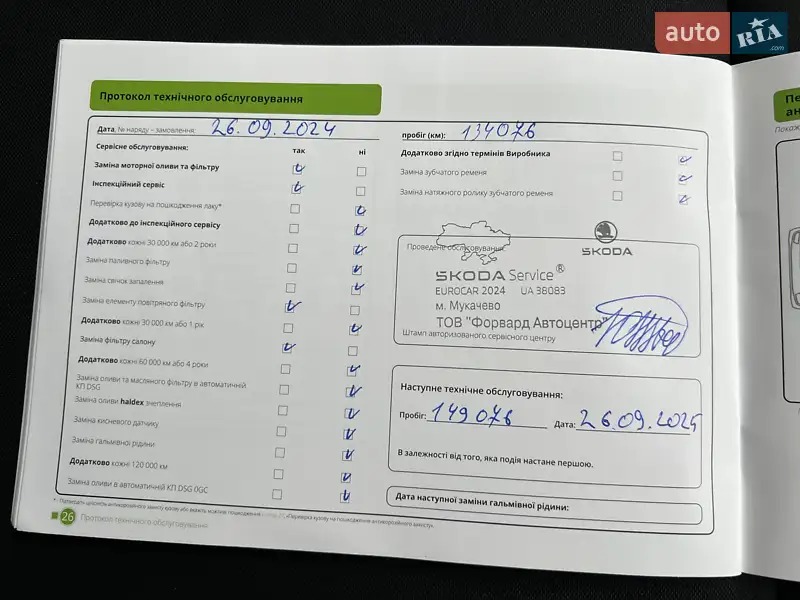 auto RIA .com
Протокол технічного обслуговування
Дата, № наряду – замовлення: 26.09.2024
пробіг (км): 134076
Сервісне обслуговування: так ні
Заміна моторної оливи та фільтру
Інспекційний сервіс
Перевірка кузову на пошкодження лаку*
Додатково до інспекційного сервісу
Додатково кожні 30 000 км або 2 роки
Заміна паливного фільтру
Заміна свічок запалення
Заміна елементу повітряного фільтру
Додатково кожні 30 000 км або 1 рік
Заміна фільтру салону
Додатково кожні 60 000 км або 4 роки
Заміна оливи та масляного фільтру в автоматичній
КП DSG
Заміна оливи haldex зчеплення
Заміна кисневого датчику
Заміна гальмівної рідини
Додатково кожні 120 000 км
Заміна оливи в автоматичній КП DSG 0GC
Додатково згідно термінів Виробника
Заміна зубчатого ременя
Заміна натяжного ролику зубчатого ременя
Проведене обслуговування:
SKODA
SKODA Service®
EUROCAR 2024 UA 38083
м. Мукачево
ТОВ "Форвард Автоцентр"
Штамп авторизованого сервісного центру
Наступне технічне обслуговування:
Пробіг: 149076 Дата: 26.09.2025
В залежності від того, яка подія настане першою.
Дата наступної заміни гальмівної рідини:
26 Протокол технічного обслуговування